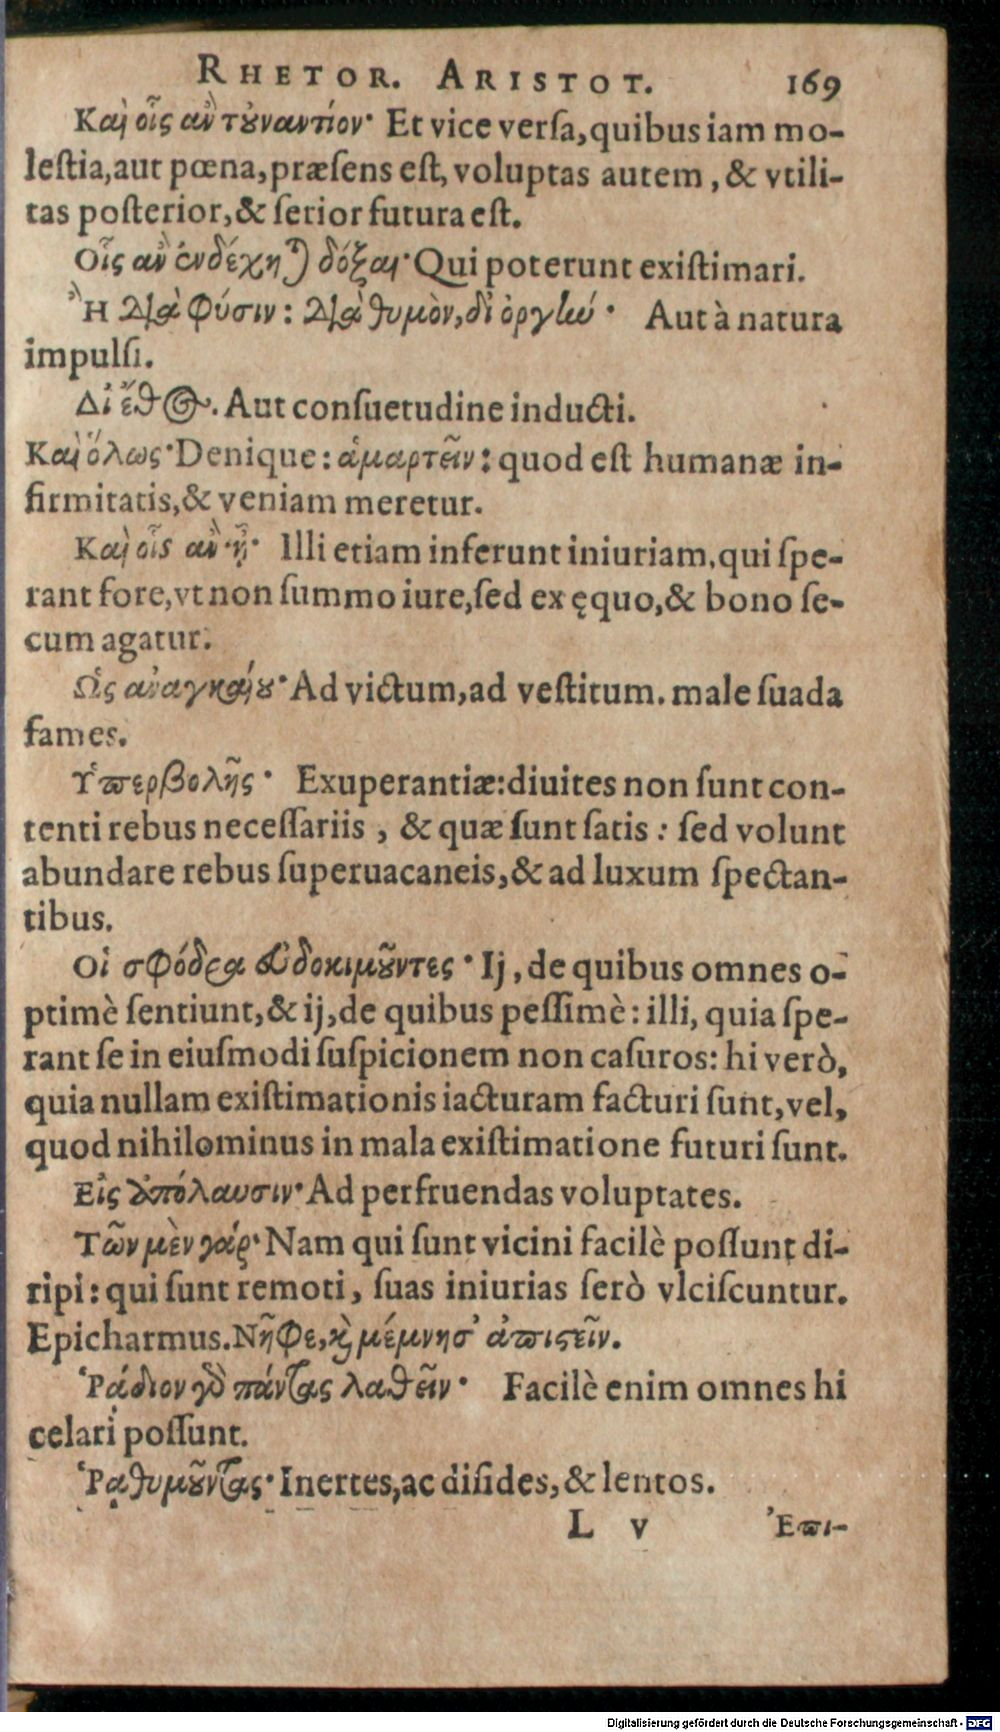 RHETOR. ARISTOT. 169
Καὶ οἷς ἂν τοὐναντίον· Et vice versa, quibus iam mo-
lestia, aut pœna, præsens est, voluptas autem, & vtili-
tas posterior, & serior futura est.
Οἷς ἂν ἐνδέχηται δόξαι· Qui poterunt existimari.
Ἢ διὰ φύσιν: διὰ θυμὸν, δι' ὀργὴν· Aut à natura
impulsi.
Δι' ἔθος. Aut consuetudine inducti.
Καὶ ὅλως· Denique: ἁμαρτεῖν: quod est humanæ in-
firmitatis, & veniam meretur.
Καὶ οἷς ἂν ᾖ· Illi etiam inferunt iniuriam, qui spe-
rant fore, vt non summo iure, sed ex ęquo, & bono se-
cum agatur.
Ὡς ἀναγκαίου· Ad victum, ad vestitum. male suada
fames.
Ὑπερβολῆς· Exuperantiæ: diuites non sunt con-
tenti rebus necessariis, & quæ sunt satis: sed volunt
abundare rebus superuacaneis, & ad luxum spectan-
tibus.
Οἱ σφόδρα εὐδοκιμοῦντες· Ij, de quibus omnes o-
ptimè sentiunt, & ij, de quibus pessimè: illi, quia spe-
rant se in eiusmodi suspicionem non casuros: hi verò,
quia nullam existimationis iacturam facturi sunt, vel,
quod nihilominus in mala existimatione futuri sunt.
Εἰς ἀπόλαυσιν· Ad perfruendas voluptates.
Τῶν μὲν γάρ· Nam qui sunt vicini facilè possunt di-
ripi: qui sunt remoti, suas iniurias serò vlciscuntur.
Epicharmus. Νῆφε, καὶ μέμνησ' ἀπιστεῖν.
Ῥάδιον γὰρ πάντας λαθεῖν· Facilè enim omnes hi
celari possunt.
Ῥᾳθυμοῦντας· Inertes, ac disides, & lentos.
L v Ἐπι-
Digitalisierung gefördert durch die Deutsche Forschungsgemeinschaft - DFG